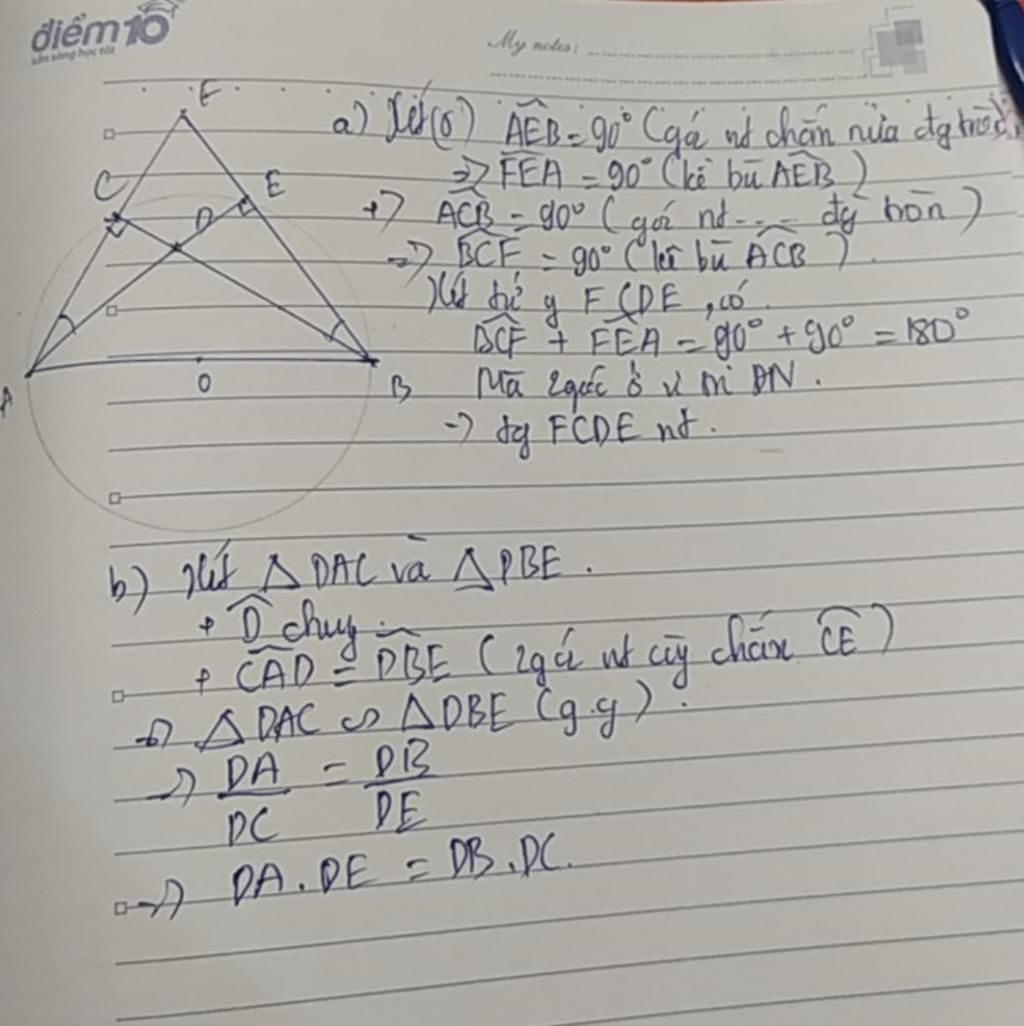 điểm10
sẵn sàng học tốt
My notes:
F
C
E
D
A
O
B
a) Xét (O) AEB = 90° (góc nt chắn nửa đg tròn)
=> FEA = 90° (kề bù AEB)
+) ACB = 90° (góc nt --- đg tròn)
=> BCF = 90° (kề bù ACB).
Xét tứ g FCDE, có
BCF + FEA = 90° + 90° = 180°
Mà 2 góc ở vị trí ĐN.
-> tg FCDE nt.
b) Xét △DAC và △DBE.
+ D chug.
+ CAD = DBE (2 góc nt cùg chắn CE)
-> △DAC ∽ △DBE (g.g).
-> DA/DC = DB/DE
-> DA.DE = DB.DC.